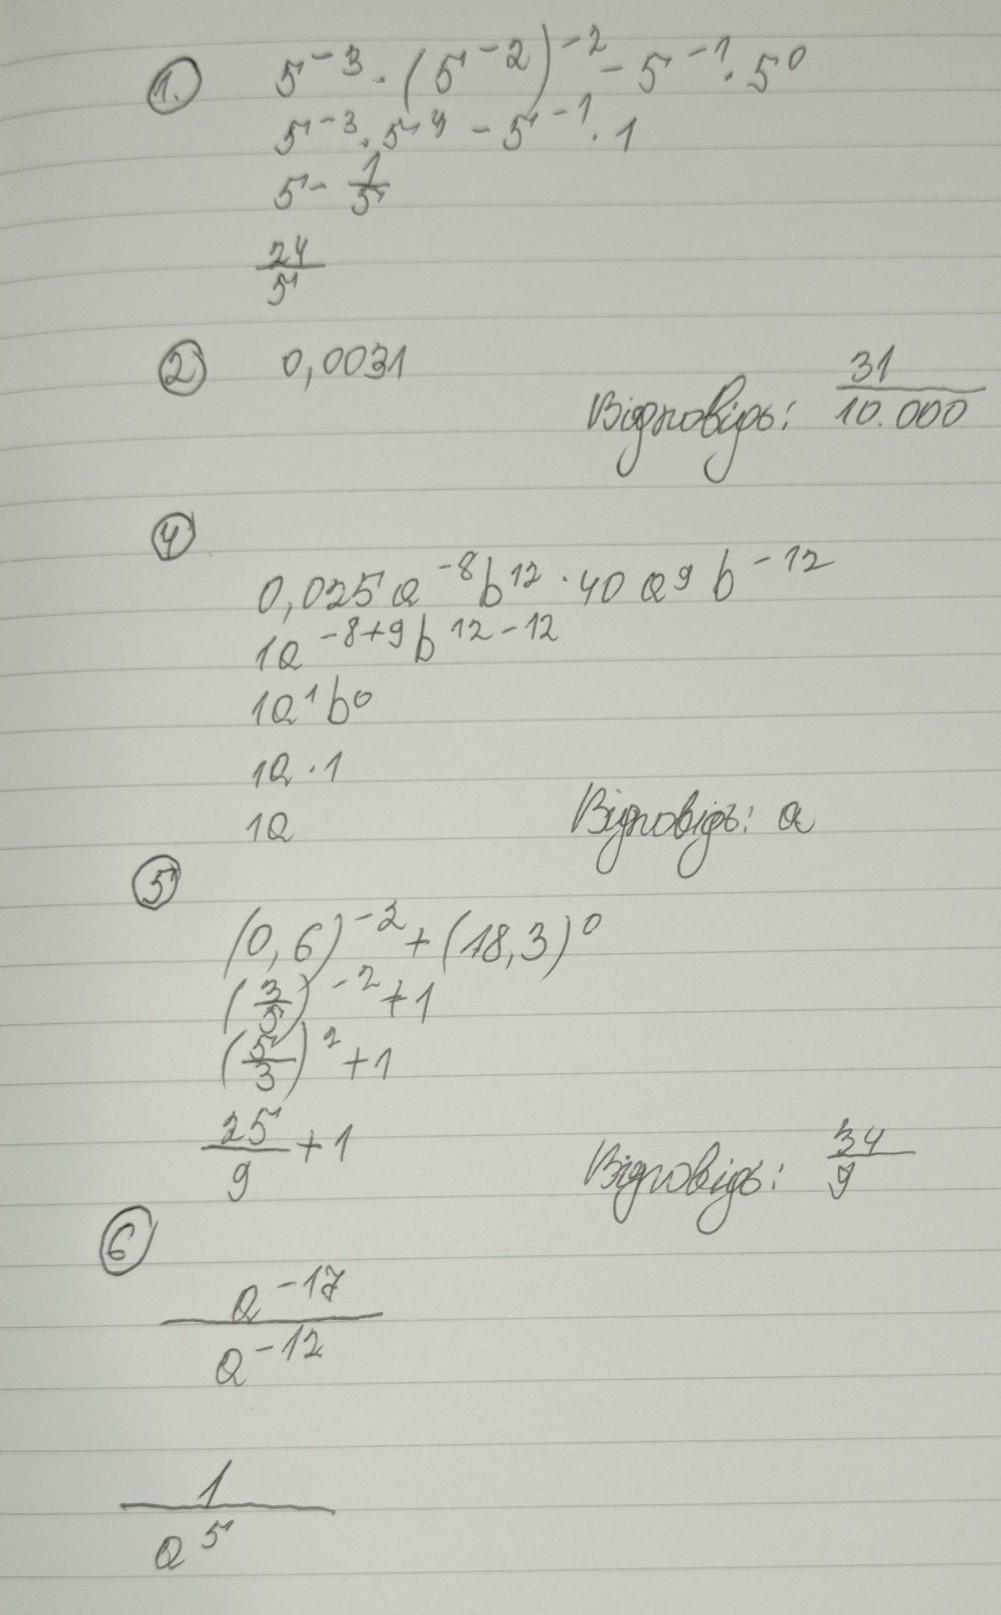 1. 5⁻³ · (5⁻²)⁻² - 5⁻¹ · 5⁰
5⁻³ · 5⁴ - 5⁻¹ · 1
5 - 1/5
24/5
2 0,0031
Відповідь: 31/10.000
4
0,025a⁻⁸b¹² · 40a⁹b⁻¹²
1a⁻⁸⁺⁹b¹²⁻¹²
1a¹b⁰
1a · 1
1a Відповідь: a
5
(0,6)⁻² + (18,3)⁰
(3/5)⁻² + 1
(5/3)² + 1
25/9 + 1 Відповідь: 34/9
6
a⁻¹⁷/a⁻¹²
1/a⁵